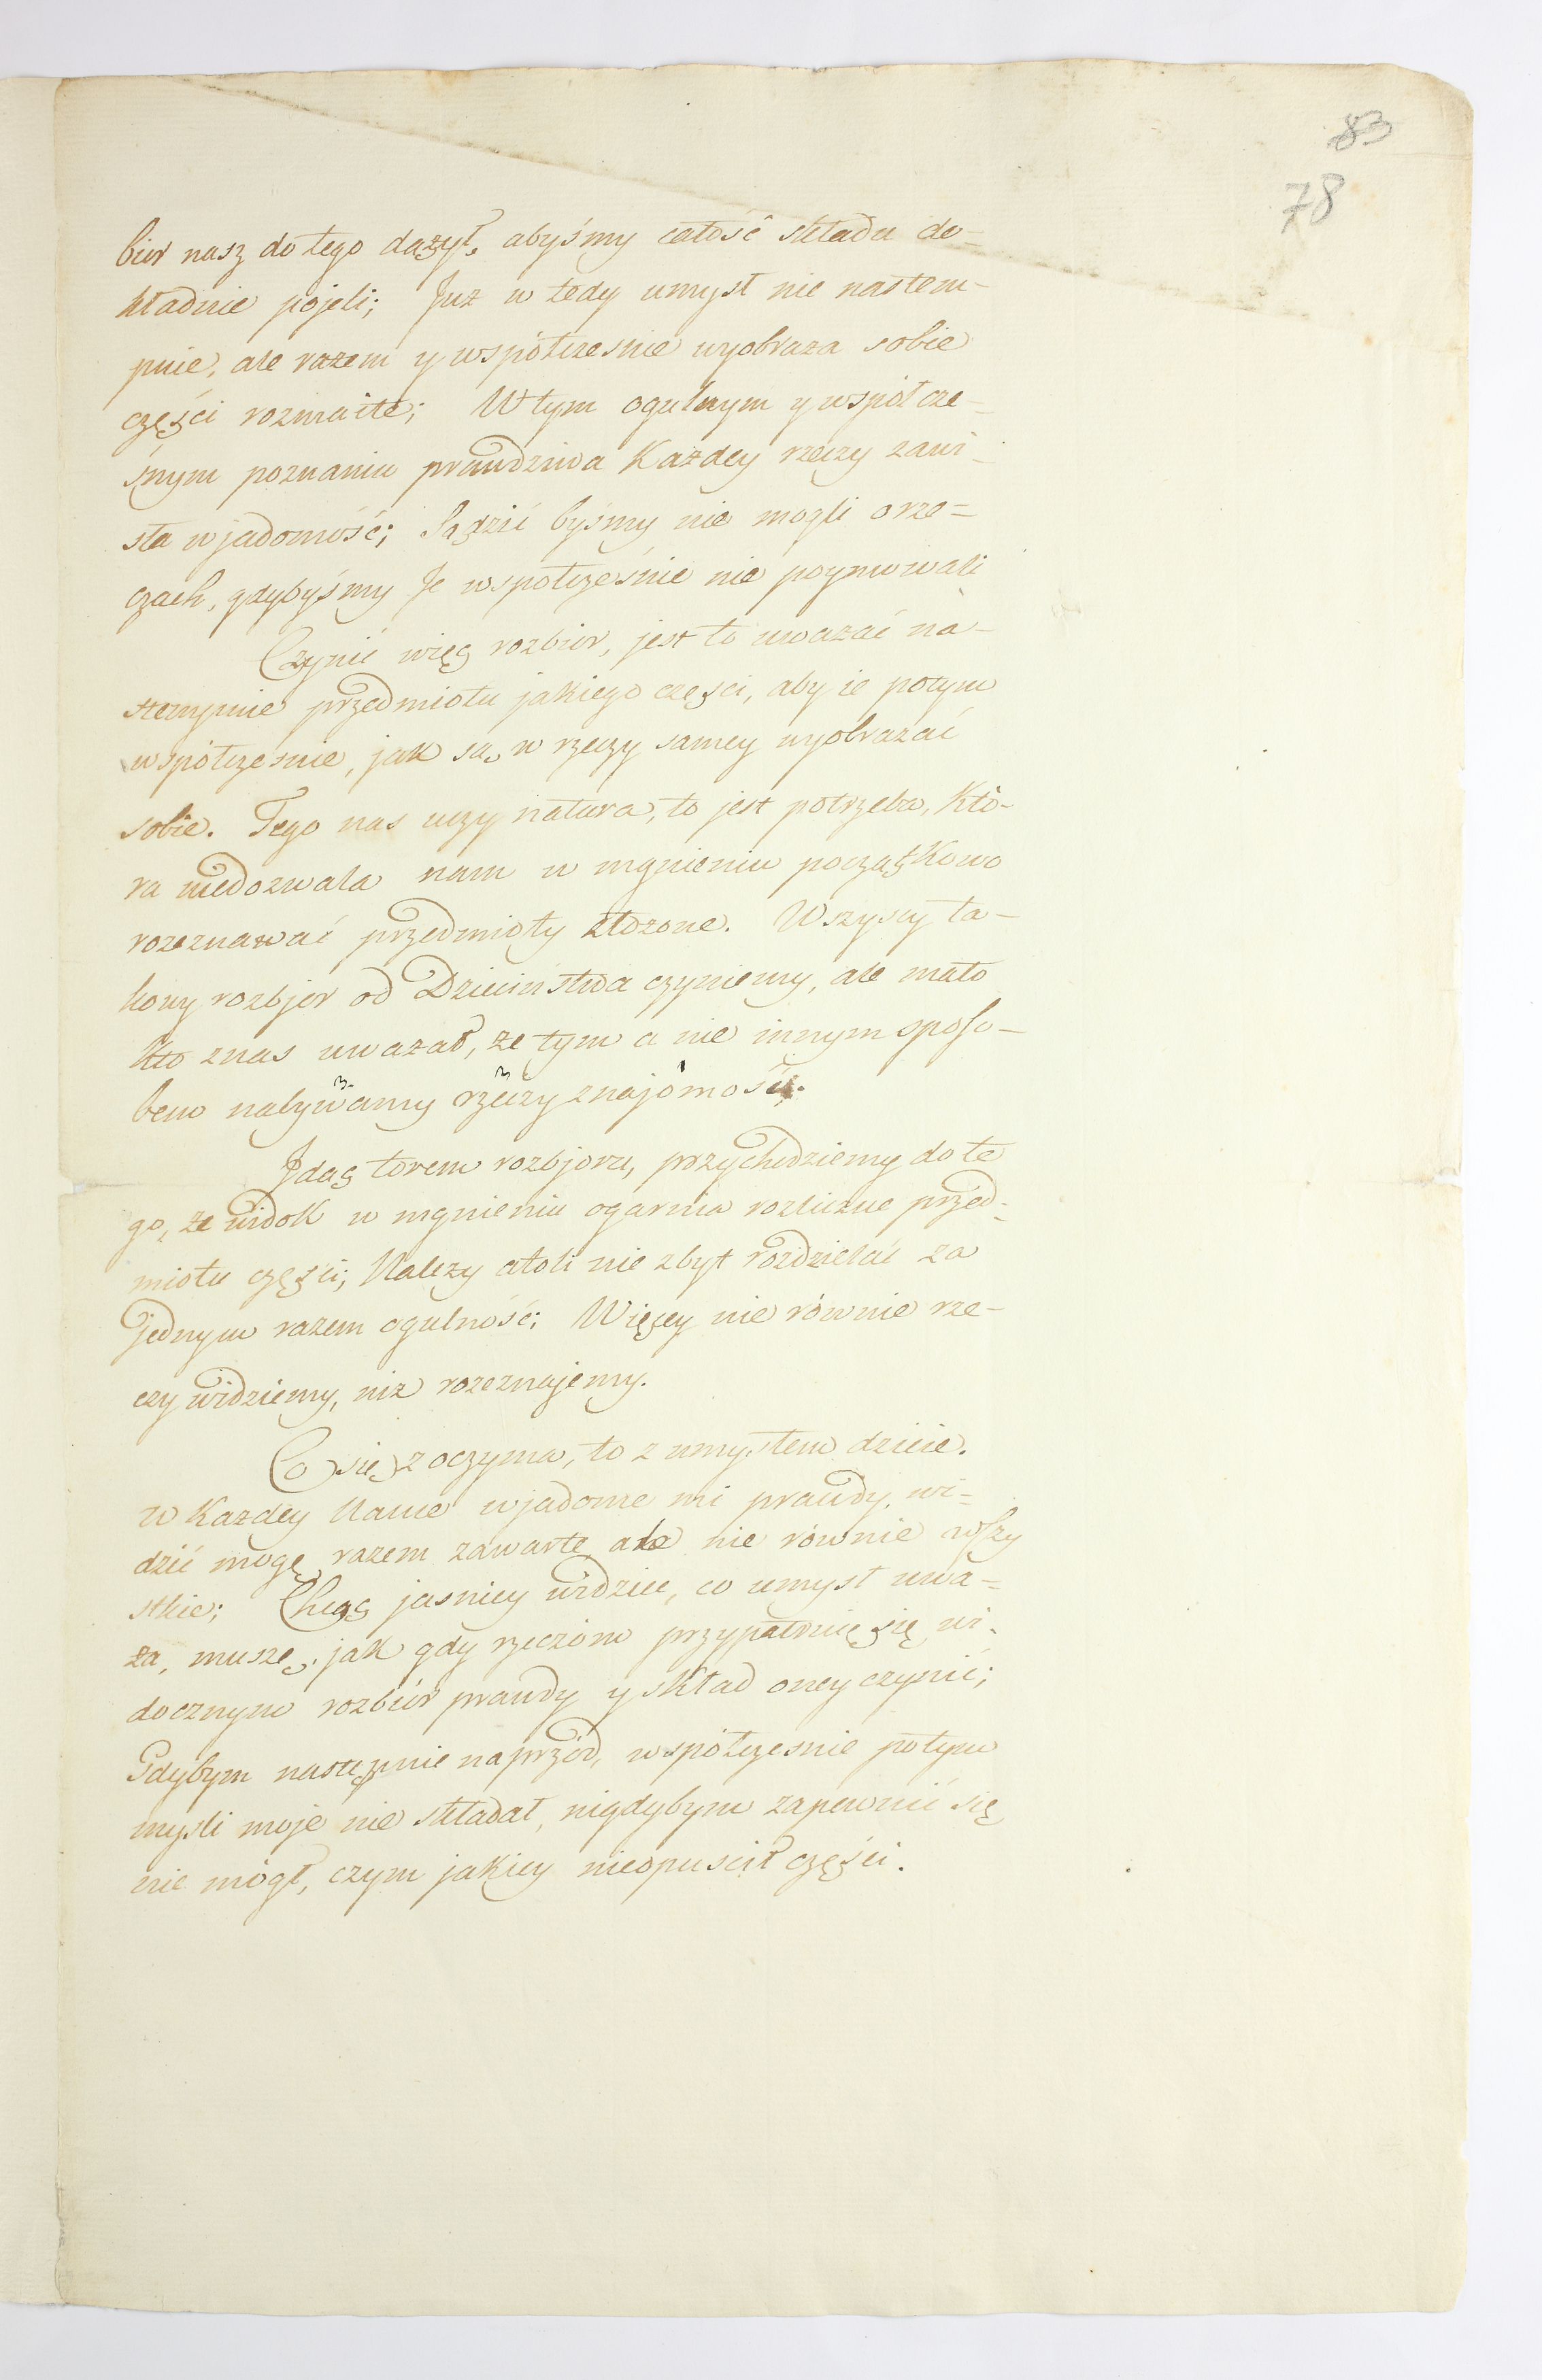 83
78
biór nasz do tego dążył, abyśmy całość składu do-
kładnie pojęli; Juz w tedy umysł nie nastem-
pnie, ale razem y wspołczesnie wyobraza sobie
części rozmaite; W tym ogulnym y wspołcze-
śnym poznaniu prawdziwa Każdey rzeczy zawi-
sła wjadomość; Sądzić byśmy nie mogli o rze=
czach, gdybyśmy Je wspołcześnie nie poymowali
Czynić więc rozbior, jest to uwazać na-
stempnie przedmiotu jakiego częsci, aby ie potym
wspołczesnie, jak są w rzeczy samey wyobrazać
sobie. Tego nas uczy natura, to jest potrzeba, Któ-
ra niedozwala nam w mgnieniu początkowo
rozeznawać przedmioty złozone. Wszyscy ta-
kowy rozbjor od Dzieciństwa czyniemy, ale mało
Kto znas uwazał, ze tym a nie innym sposo-
bem nabywamy rzeczy znajomość.
Jdąc torem rozbjoru, przychodziemy do te
go, ze widok w mgnieniu ogarnia rozliczne przed-
miotu części; Nalezy atoli nie zbyt rozdzielać za
jednym razem ogulność; Więcey nie równie rze-
czy widziemy, niz rozeznajemy.
Co się z oczyma, to z umysłem dzieie.
w Kazdey Nauce wjadome mi prawdy, wi-
dzić mogę razem zawarte ale nie równie wszy
stkie; Chcąc jasniey widziec, co umysł uwa-
za, muszę, jak gdy rzeczom przypatruię się wi-
docznym rozbiór prawdy y skład oney czynić;
Gdybym nastęmpnie naprzód, wspołczesnie potym
mysli moje nie składał, nigdybym zapewnić się
nie mógł, czym jakiey nieopuscił części.